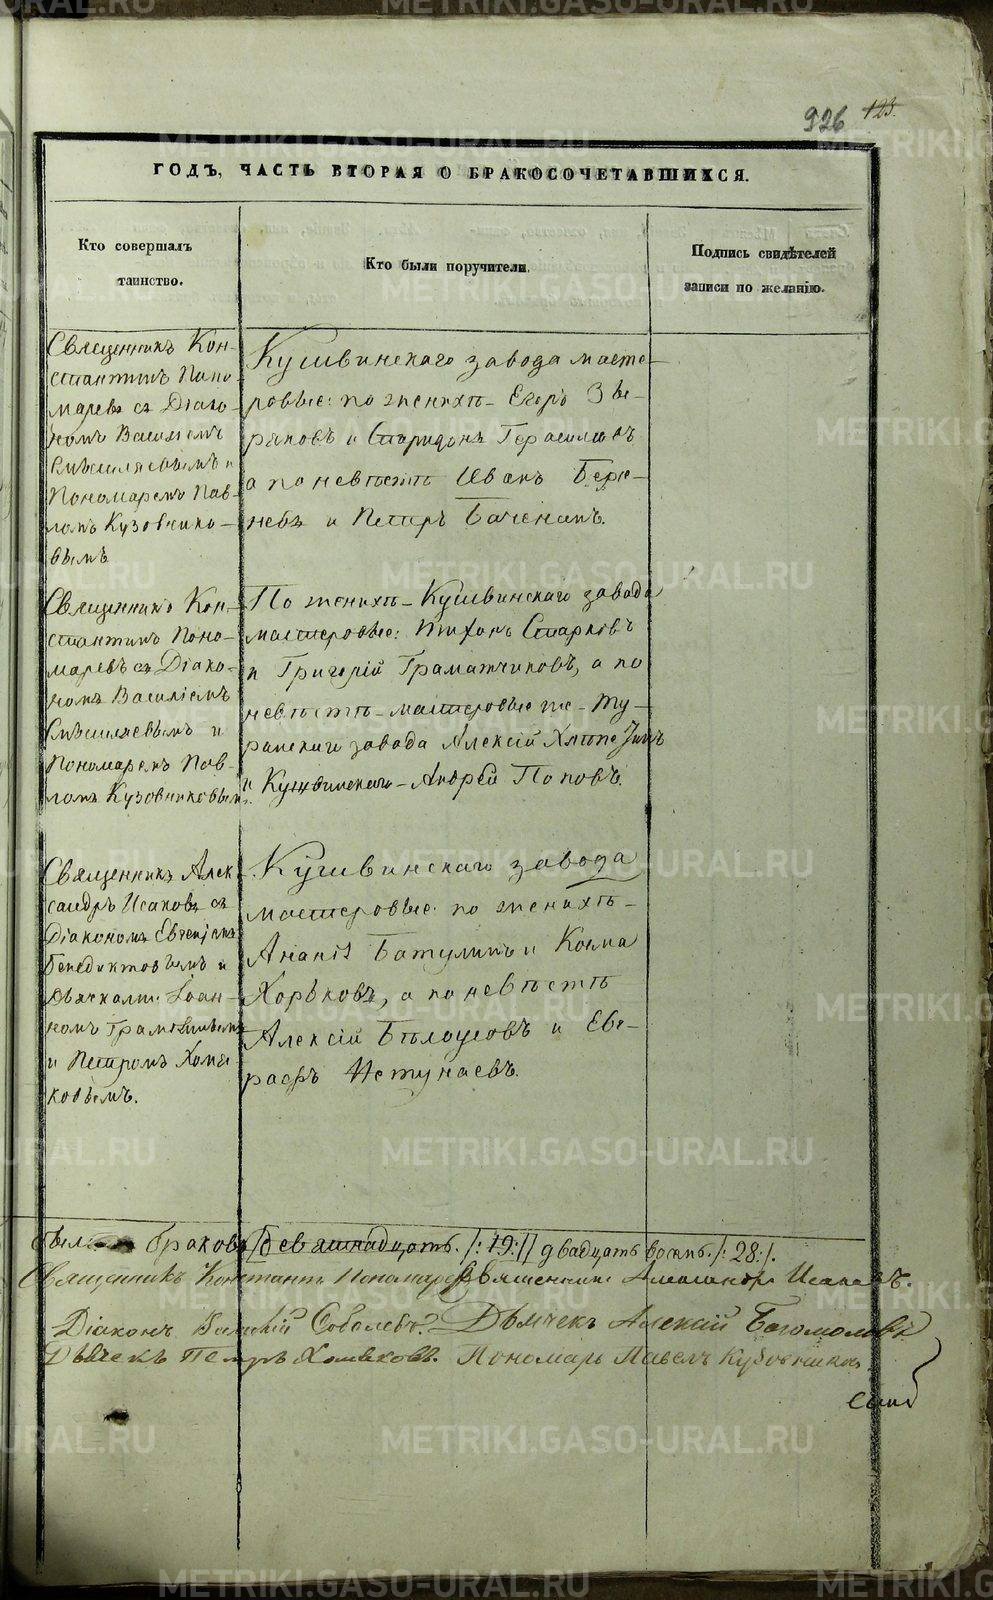 926 123.
ГОДЪ, ЧАСТЬ ВТОРАЯ О БРАКОСОЧЕТАВШИХСЯ.
Кто совершалъ
таинство.
Кто были поручители.
Подпись свидѣтелей
записи по желанію.
Священникъ Кон-
стантинъ Поно-
маревъ съ Діако-
номъ Василіемъ
и
Пономаремъ Пав-
ломъ Кузовнико-
вымъ
Кушвинскаго завода масте-
ровые: по женихѣ - Егоръ Звѣ-
ряковъ и Спиридонъ Герасимовъ
а по невѣстѣ Иванъ
и Петръ
Священникъ Кон-
стантинъ Поно-
маревъ съ Діако-
номъ Василіемъ
и
Пономаремъ Пав-
ломъ Кузовниковымъ
По женихѣ - Кушвинскаго завода
мастеровые: Тихонъ Старковъ
и Григорій Граматчиковъ, а по
невѣстѣ - мастеровые же - Ту-
ранскаго завода Алексій
и Кушвинскаго - Андрей Поповъ.
Священникъ Алек-
сандръ Исаковъ съ
Діакономъ Евгеніемъ
Бенедиктовымъ и
Дьячками: Іоан-
номъ
и Петромъ Хомя-
ковымъ.
Кушвинскаго завода
мастеровые: по женихѣ -
Ананій Батулинъ и Косма
Хорьковъ, а по невѣстѣ
Алексій Бѣлоусовъ и Ев-
графъ
браковъ девятнадцать. /:19:/ двадцать восемь. /:28:/.
Священникъ Константинъ Пономаревъ Священникъ Александръ Исаковъ.
Діаконъ Василій Соболевъ. Дьячекъ Алексій Богомоловъ
Дьячекъ Петръ Хомяковъ. Пономарь Павелъ Кузовниковъ.
METRIKI.GASO-URAL.RU